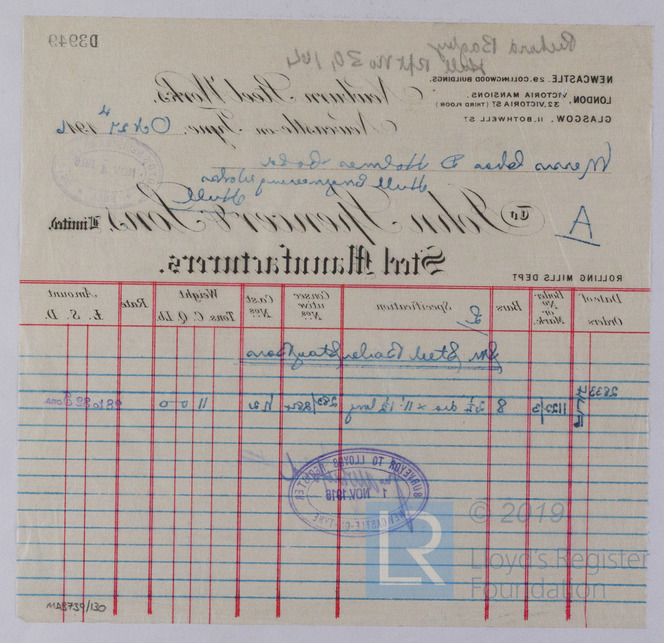 D3949
Richard Bagley
Hull Rpt No 30,164
NEWCASTLE. 29. COLLINGWOOD BUILDINGS.
LONDON, VICTORIA MANSIONS,
32, VICTORIA ST (THIRD FLOOR)
GLASGOW, 11. BOTHWELL ST
Newburn Steel Works.
Newcastle-on-Tyne, Oct 27 1916
Messrs Holmes
Hull Engineering Works
Hull
A
To John Spencer & Sons, Limited.
Steel Manufacturers.
ROLLING MILLS DEPT
Date of Orders
Order No. or Mark.
Bars
Specification
Consecutive Nos
Cast Nos
Weight
Tons C. Q. Lb.
Rate
Amount
£. S. D.
Steel Boiler Stay Bars
1120/3 8 dia x long 11 0 0
SURVEYOR TO LLOYDS REGISTER
1 NOV. 1916
NEWCASTLE-ON-TYNE
MA8739/130
LR
© 2019
Lloyd's Register
Foundation